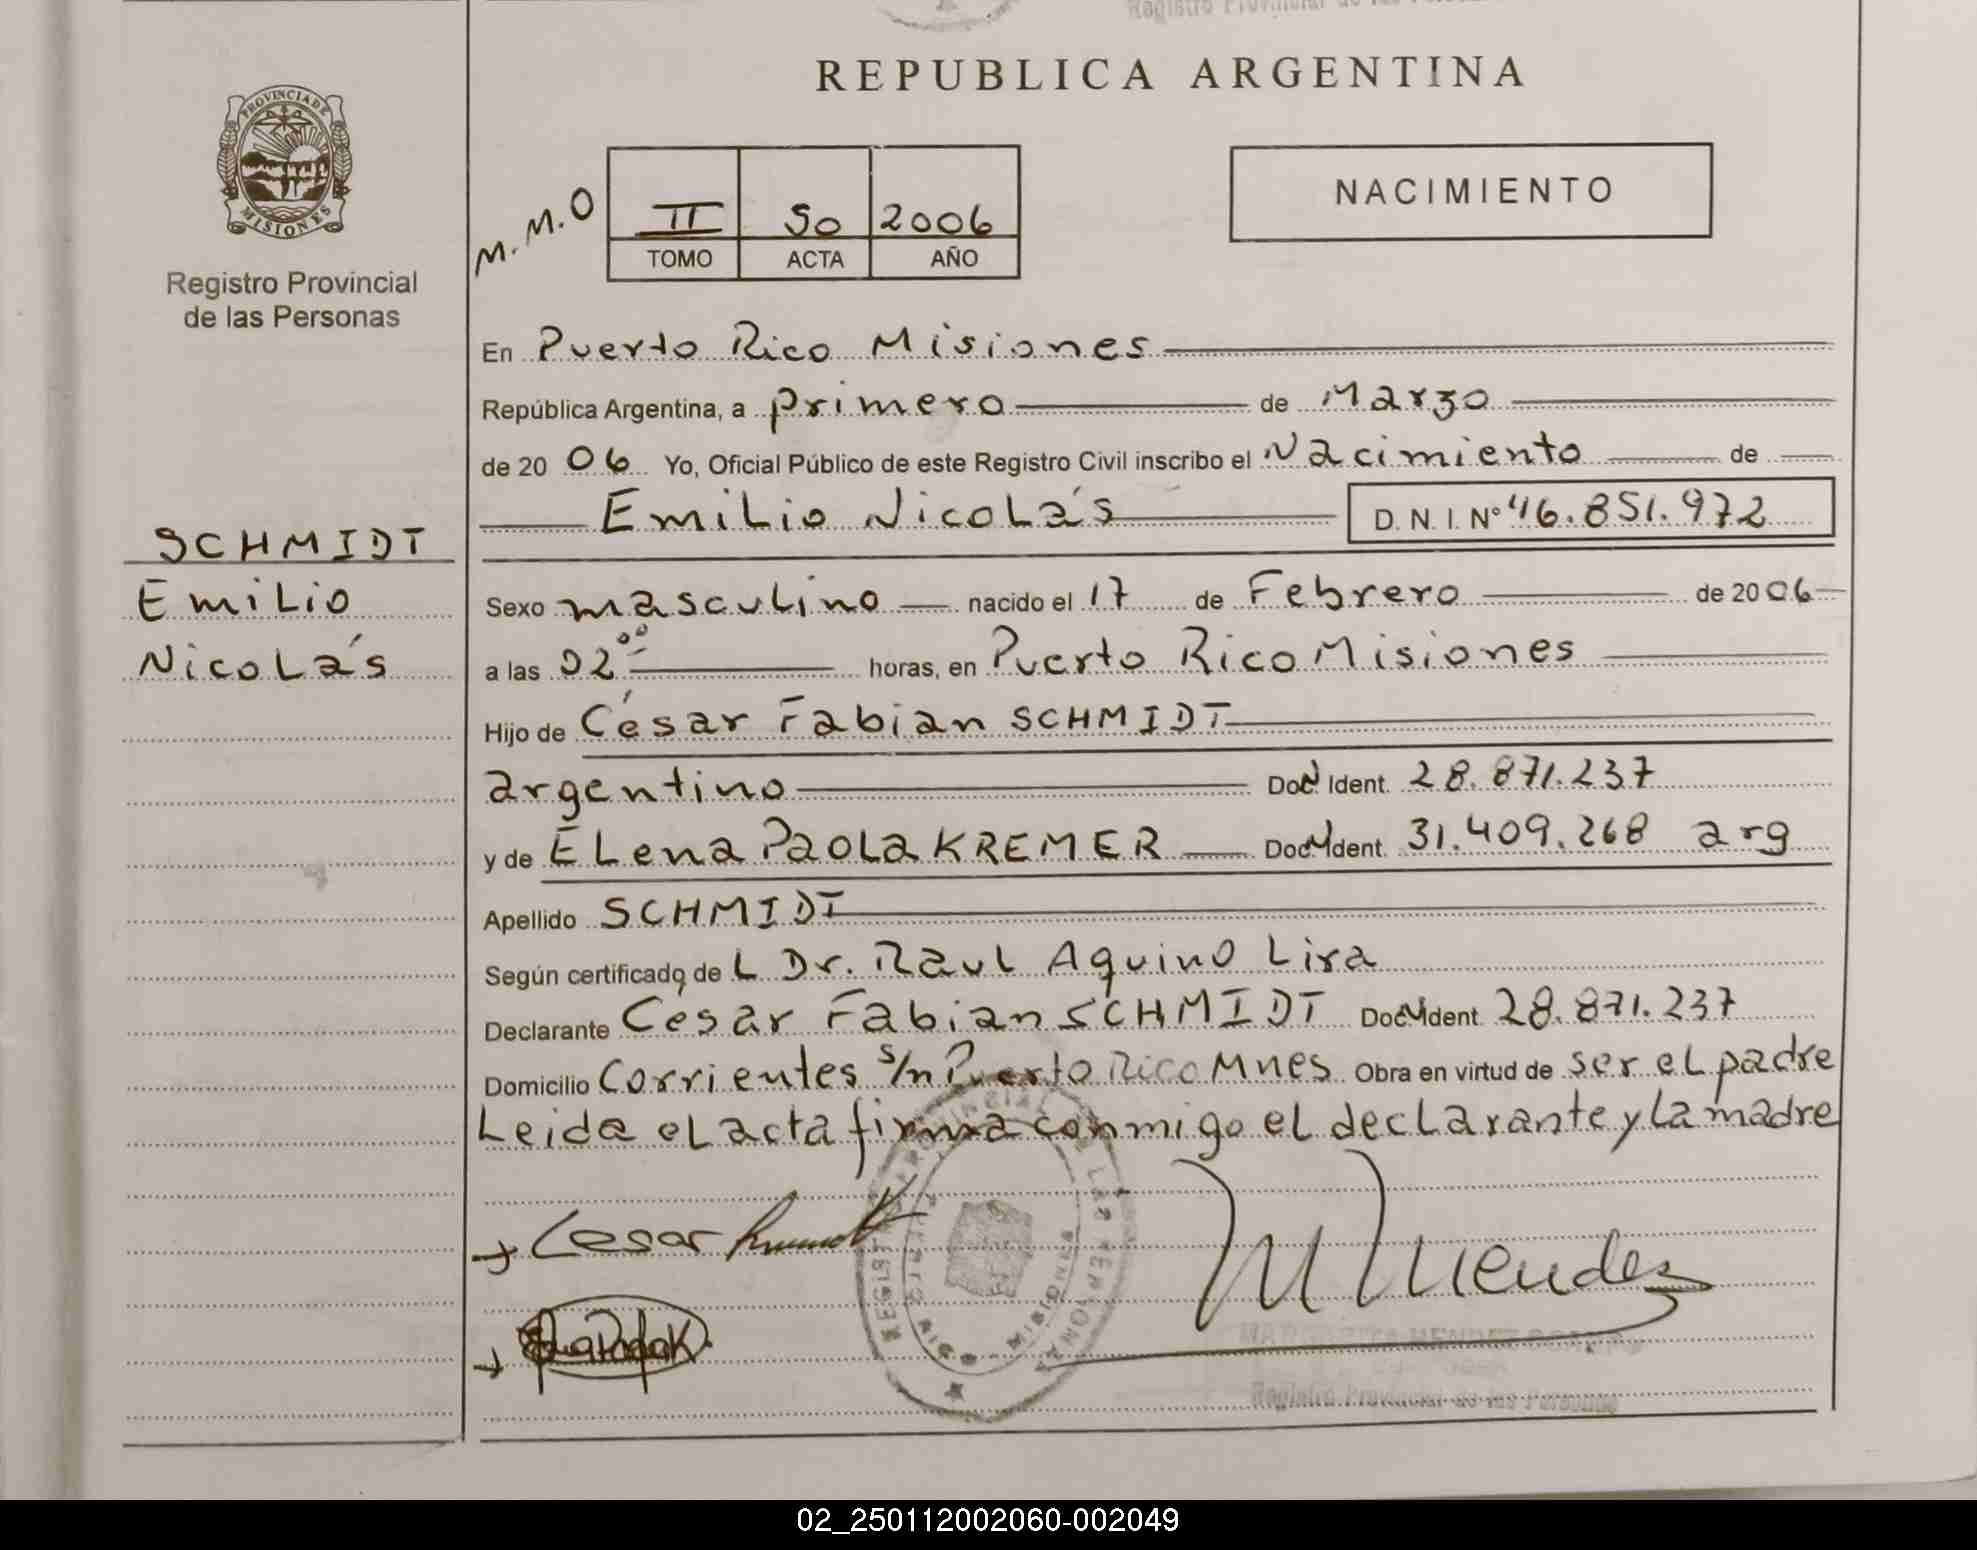 Registro Provincial de las Personas
REPUBLICA ARGENTINA
PROVINCIA DE
MISIONES
Registro Provincial
de las Personas
M.M.O
II 50 2006
TOMO ACTA AÑO
NACIMIENTO
SCHMIDT
Emilio
Nicolás
En Puerto Rico Misiones
República Argentina, a primero de Marzo
de 20 06 Yo, Oficial Público de este Registro Civil inscribo el Nacimiento de
Emilio Nicolás D. N. I. Nº 46.851.972
Sexo masculino nacido el 17 de Febrero de 20 06
a las 02 00 horas, en Puerto Rico Misiones
Hijo de César Fabian SCHMIDT
argentino Doc N Ident. 28.871.237
y de Elena Paola KREMER Doc N Ident. 31.409.268 arg
Apellido SCHMIDT
Según certificado de L Dr. Raul Aquino Lira
Declarante César Fabian SCHMIDT Doc N Ident. 28.871.237
Domicilio Corrientes s/n Puerto Rico Mnes Obra en virtud de ser el padre
Leida el acta firma conmigo el declarante y la madre
Cesar
Mendez
REGISTRO PROVINCIAL DE LAS PERSONAS
PUERTO RICO - MISIONES
MARGARITA MENDEZ
Registro Provincial de las Personas
02_250112002060-002049